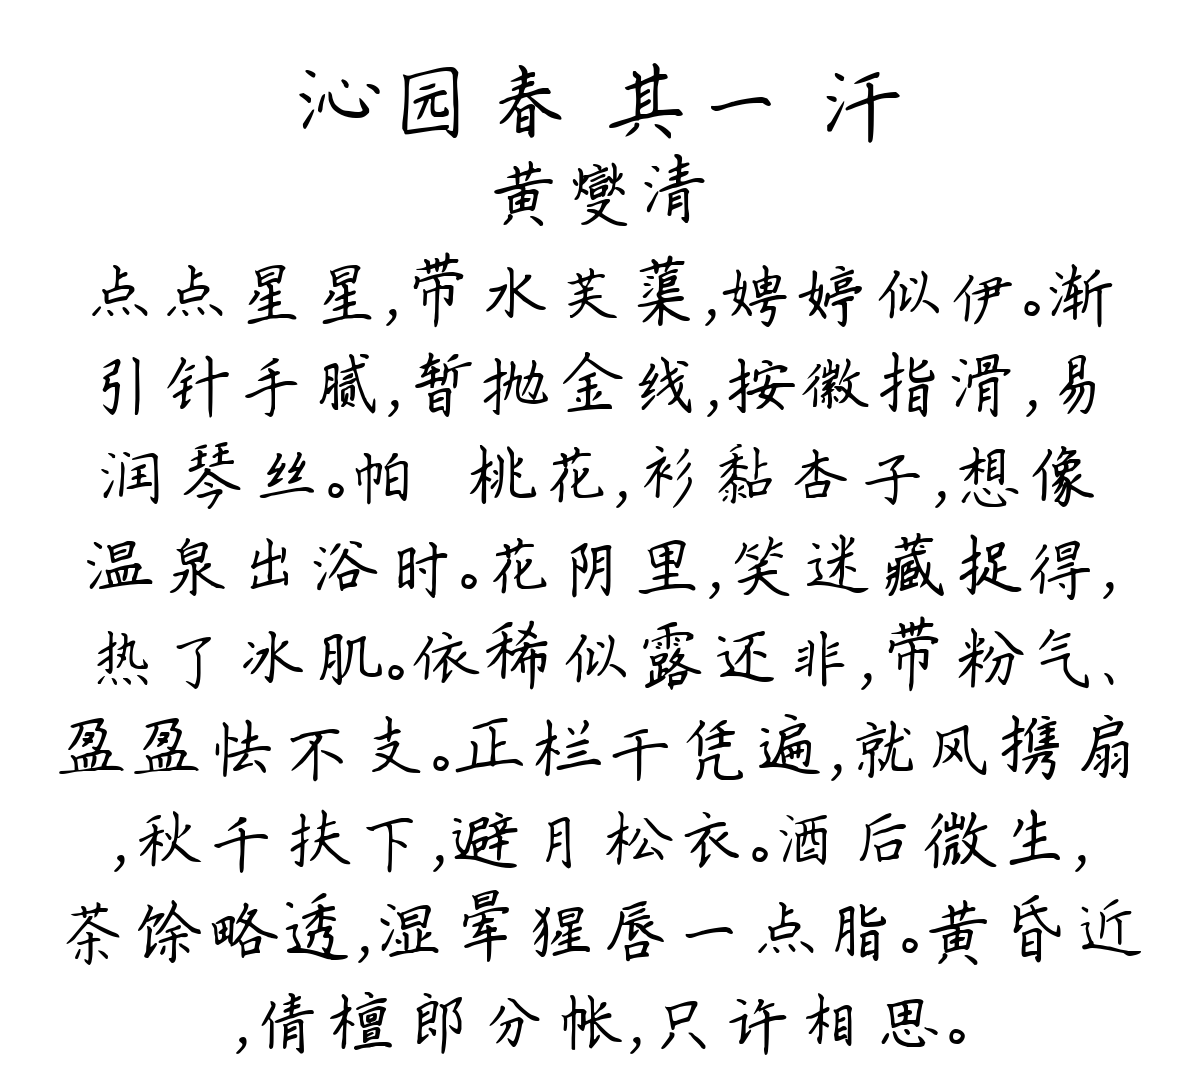 沁园春 其一 汗
黄燮清
点点星星,带水芙蕖,娉婷似伊。渐
引针手腻,暂抛金线,按徽指滑,易
润琴丝。帕 桃花,衫黏杏子,想像
温泉出浴时。花阴里,笑迷藏捉得,
热了冰肌。依稀似露还非,带粉气、
盈盈怯不支。正栏干凭遍,就风携扇
,秋千扶下,避月松衣。酒后微生,
茶馀略透,湿晕猩唇一点脂。黄昏近
,倩檀郎分帐,只许相思。